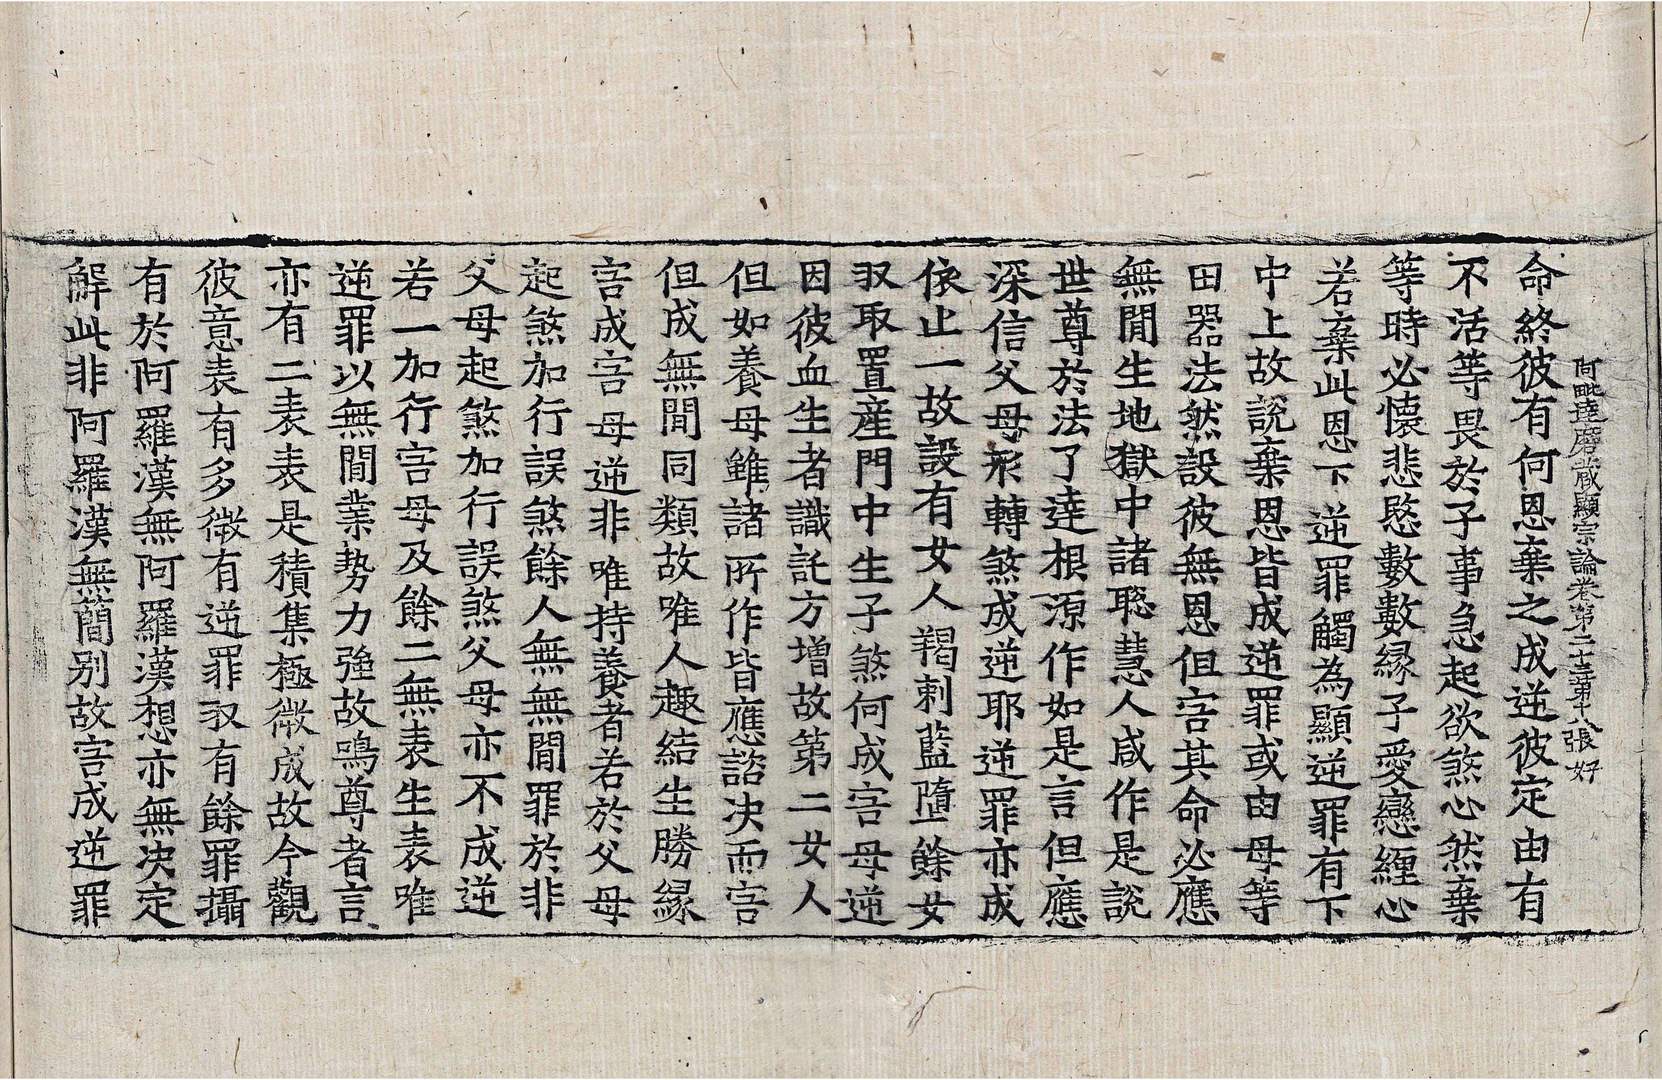 阿毗達磨藏顯宗論卷第二十三第十八張 好
命終彼有何恩棄之成逆彼定由有
不活等畏於子事急起欲煞心然棄
等時必懷悲愍數數緣子愛戀纏心
若棄此恩下逆罪觸為顯逆罪有下
中上故說棄恩皆成逆罪或由母等
田器法然設彼無恩但害其命必應
無閒生地獄中諸聡慧人咸作是說
世尊於法了達根源作如是言但應
深信父母形轉煞成逆耶逆罪亦成
依止一故設有女人羯剌藍墮餘女
収取置産門中生子煞何成害母逆
因彼血生者識託方增故第二女人
但如養母雖諸所作皆應諮决而害
但成無間同類故唯人趣結生勝緣
害成害母逆非唯持養者若於父母
起煞加行誤煞餘人無無閒罪於非
父母起煞加行誤煞父母亦不成逆
若一加行害母及餘二無表生表唯
逆罪以無閒業勢力強故鳴尊者言
亦有二表表是積集極微成故今觀
彼意表有多微有逆罪収有餘罪攝
有於阿羅漢無阿羅漢想亦無决定
解此非阿羅漢無簡別故害成逆罪